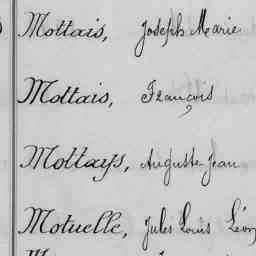 Mottais, Joseph Marie
Mottais, François
Mottays, Auguste Jean
Motuelle, Jules Louis Léon